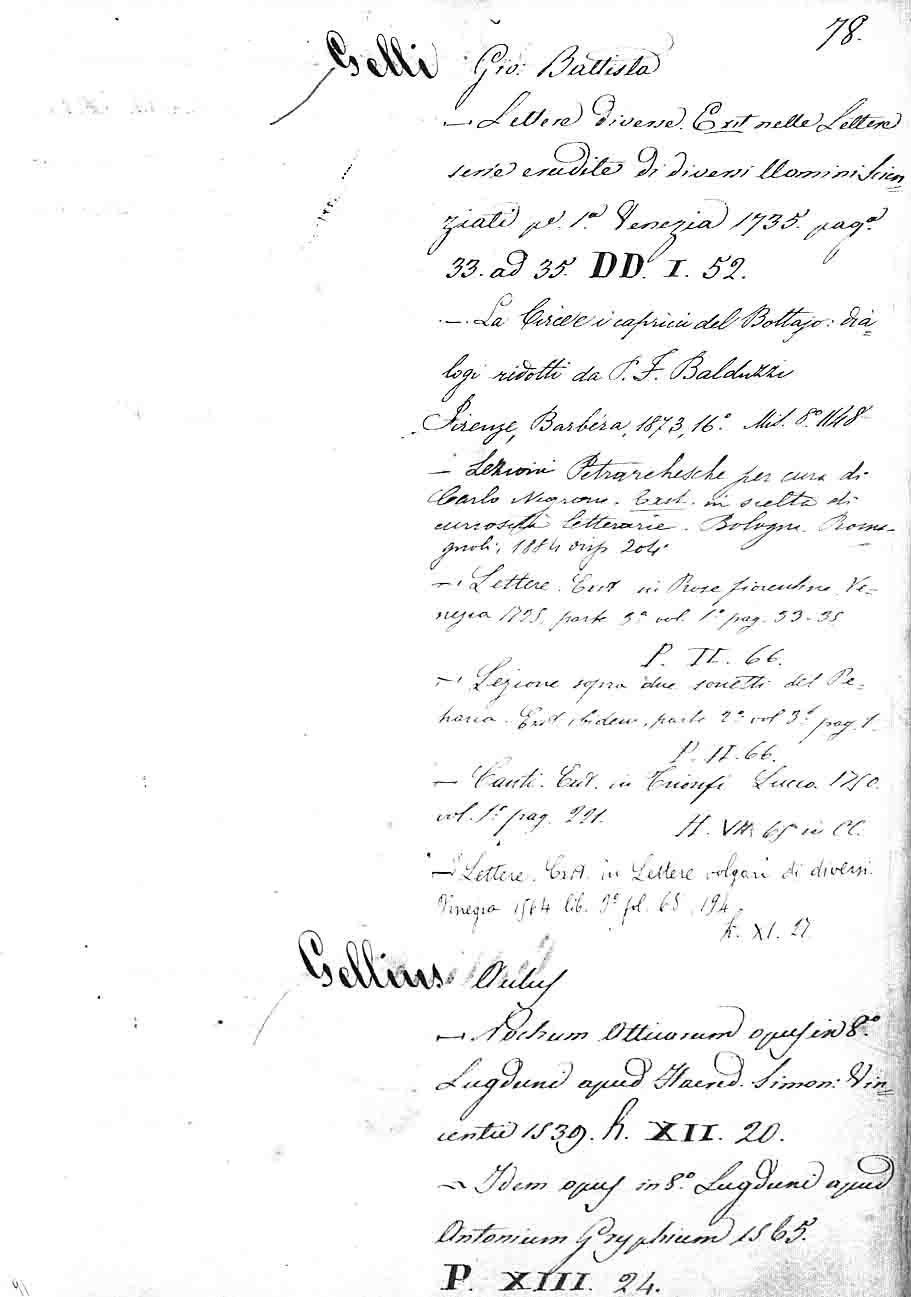 78.
Gelli Gio: Battista
— Lettere diverse. Exit nelle Lettere
serie erudite di diversi Uomini Scien=
ziati pe. 1.a Venezia 1735. pag.e
33. ad 35. DD. I. 52.
— La Circe e i capricci del Bottajo: dia=
logi ridotti da P. F. Balduzzi
Firenze, Barbèra, 1873, 16.o Mil. 8.o 1148
— Lezioni Petrarchesche per cura di
Carlo Negroni. Exst. in scelta di
curiosità letterarie. Bologna. Roma-
gnoli, 1884 disp 204
— Lettere. Exst in Prose fiorentine. Ve=
nezia 1735, parte 3a vol. 1o pag. 33-35
P. II. 66.
— Lezione sopra due sonetti del Pe=
trarca. Exst ibidem, parte 2a vol 3o pag. 1.
P. II. 66.
— Canti. Exst. in Trionfi Lucca. 1750.
vol. 1o pag. 221. H. VII. 65 in CC.
— Lettere. Exst. in Lettere volgari di diversi.
Vinegia 1564 lib. 3o fol. 65, 194.
k. XI. 27.
Gellius Aulus
— Noctium Atticarum opus in 8.o
Lugduni apud Haered. Simon: Vin=
centii 1539. k. XII. 20.
— Idem opus in 8.o Lugduni apud
Antonium Gryphium 1565.
P. XIII. 24.